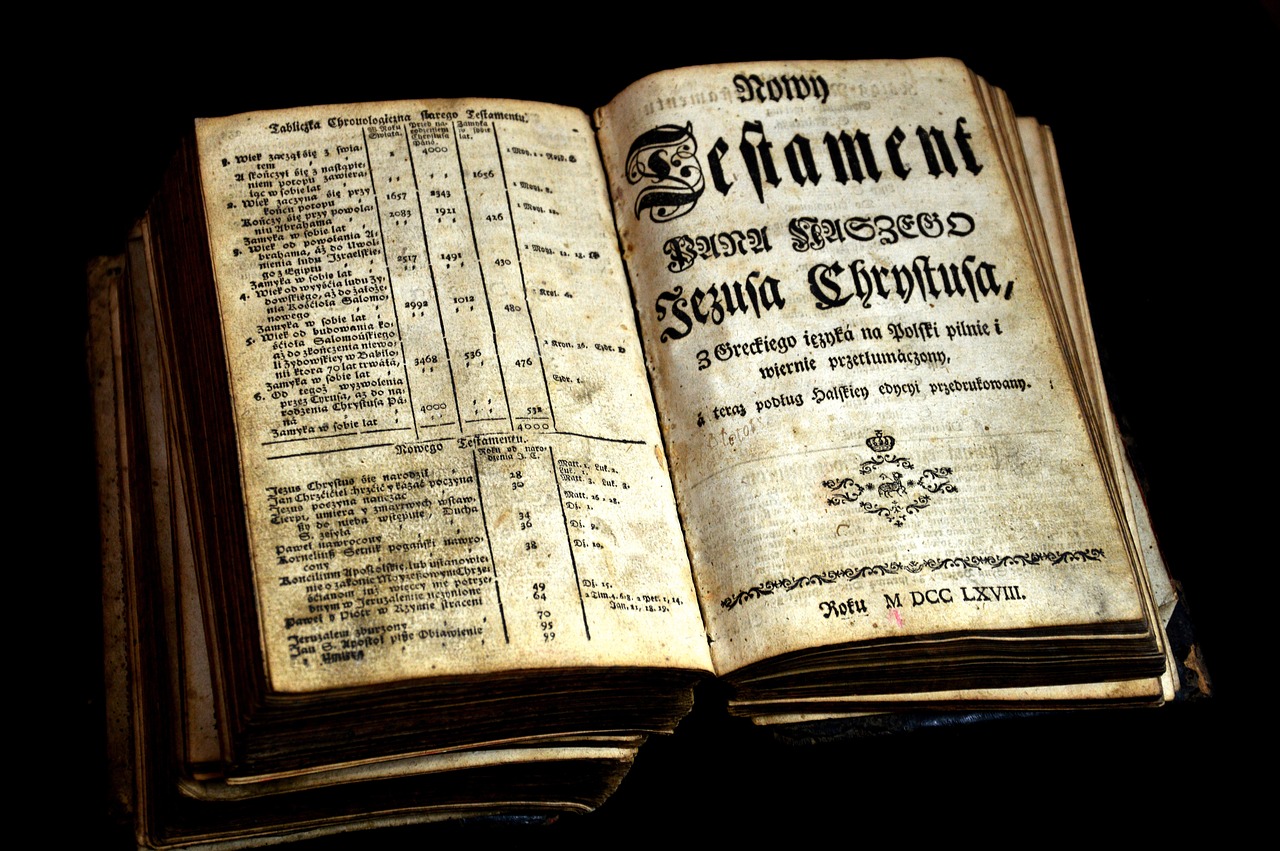 Tabliczka Chronologiczna starego Testamentu.
W Roku Swiata.
Przed na-
rodzeniem
Chrystusa
Pana.
Zamyka
w sobie
lat.
1. Wiek zaczął się z świa-
tem 1 4000 1 Moy. 1
A skończył się z nastąpie-
niem potopu zawiera-
iąc w sobie lat 1656
2. Wiek zaczyna się przy 1 Moy. 8.
końcu potopu 1657 2343
Kończy się przy powoła- 1 Moy. 12.
niu Abrahama 2083 1921
Zamyka w sobie lat 426
3. Wiek od powołania A-
brahama, aż do Uwol-
nienia ludu Izraelskie- 2 Moy. 12.
go z Egiptu 2517 1491
Zamyka w sobie lat 430
4. Wiek od wyyścia ludu Zy-
dowskiego, aż do założe-
nia Kościoła Salomo- 1 Król. 6.
nowego 2992 1012
Zamyka w sobie lat 480
5. Wiek od budowania ko-
ścioła Salomońskiego
aż do zkończenia niewo- 2 Kron. 36. Ezdr.
li Zydowskiey w Babilo-
nii ktora 70 lat trwała, 3468 536
Zamyka w sobie lat 476
6. Od tegoż wyzwolenia Ezdr. 1.
przez Cyrusa, aż do na-
rodzenia Chrystusa Pa-
na 4000
Zamyka w sobie lat 532
4000
Nowego Testamentu.
Roku od naro-
dzenia J. C.
Jezus Chrystus się narodził Matt. 1. Luk. 2.
Jan Chrzciciel chrzcić y kazać poczyna 28 Luk. Matt. 3. Luk. 3.
Jezus poczyna nauczać 30
Cierpi, umiera y zmartwych wstaw- Matt. 26 - 28.
szy do nieba wstępuie, Ducha Dz. 1.
S. zsyła 34
Paweł nawrocony 36 Dz. 9.
Korneliusz Setnik pogański nawro-
cony 38 Dz. 10.
Koncilium Apostolskie, lub ustanowie-
nie o zakonie Moyżeszowym Chrze-
ścianom iuż więcey nie potrze-
bnym w Jeruzalemie uczynione 49 Dz. 15.
Paweł y Piotr w Rzymie straceni 64 2 Tim. 4. 6. 8. 2 Pet. 1, 14. Jan. 21, 18. 19.
Jeruzalem zburzony 70
Jan S. Apostoł pisze Obiawienie 95
y umiera 99
Nowy
Testament
PANA NASZEGO
Jezusa Chrystusa,
Z Greckiego ięzyká na Polski pilnie i
wiernie przetlumáczony,
á teraz podług Halskiey edycyi przedrukowany.
Roku M DCC LXVIII.